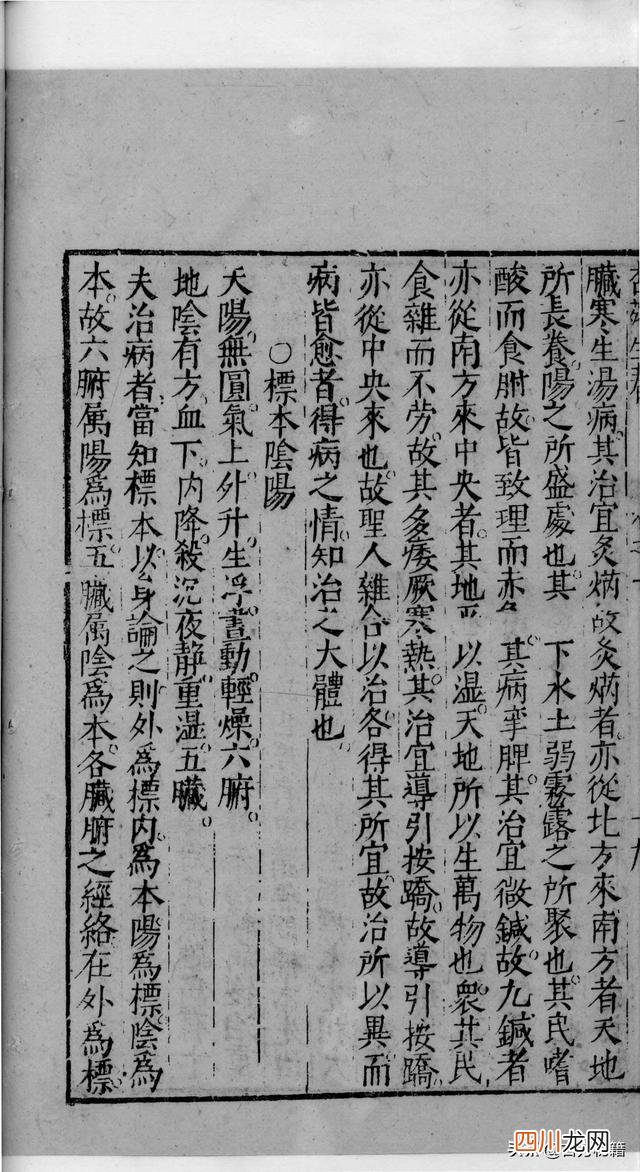 臟寒生湯病其治宜灸焫故灸焫者亦從北方來南方者天地
所長養陽之所盛處也其 下水土弱霧露之所聚也其民嗜
酸而食胕故皆致理而赤 其病孿脾其治宜微鍼故九鍼者
亦從南方來中央者其地 以湿天地所以生萬物也衆其民
食雜而不劳故其多痿厥寒熱其治宜導引按蹻故導引按蹻
亦從中央來也故聖人雜合以治各得其所宜故治所以異而
病皆愈者得病之情知治之大體也
○標本陰陽
天陽無圓氣上外升生浮晝動輕燥六腑。
地陰有方血下内降殺沉夜静重湿五臟。
夫治病者當知標本以身論之則外爲標内爲本陽爲標陰爲
本故六腑属陽爲標五臟属陰爲本各臟腑之經絡在外爲標
四川龙网